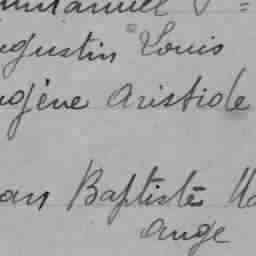 mmanuel
ugustin Louis
ugène Aristide
ean Baptiste
Ange